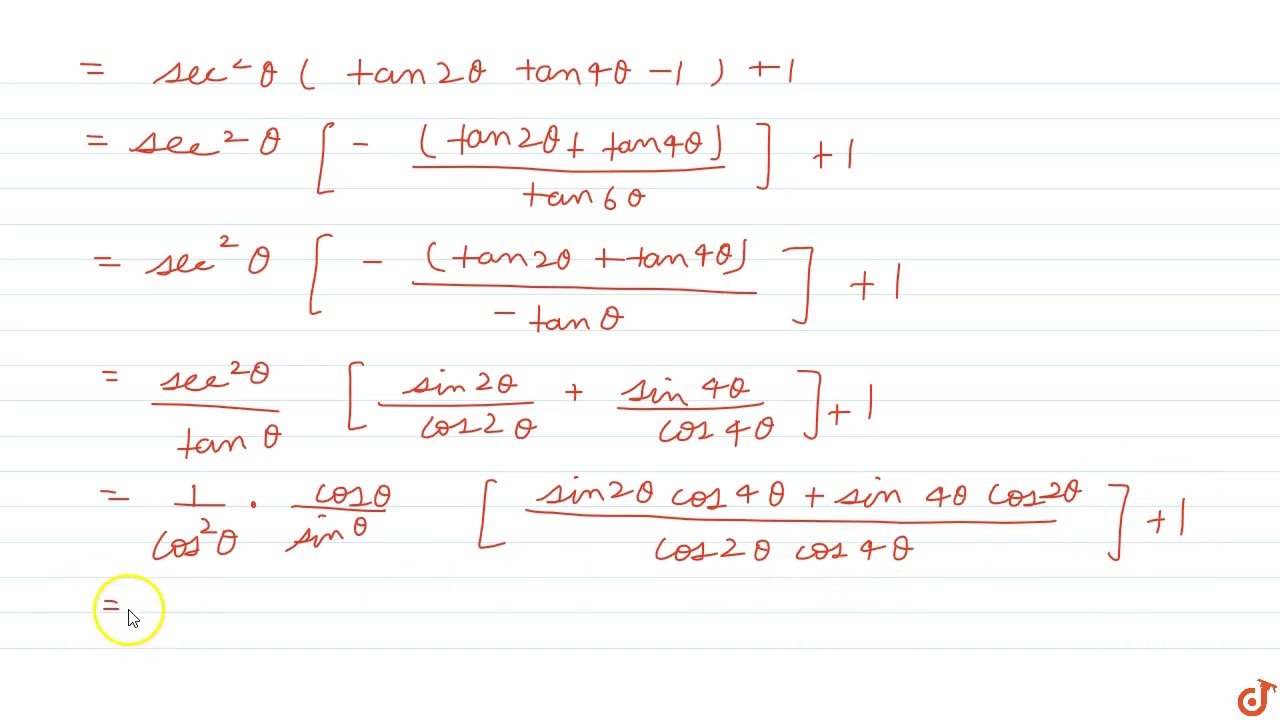 = sec²θ ( tan2θ tan4θ -1 ) +1
= sec²θ [ - (tan2θ + tan4θ) / tan6θ ] +1
= sec²θ [ - (tan2θ + tan4θ) / -tanθ ] +1
= sec²θ / tanθ [ sin2θ / cos2θ + sin4θ / cos4θ ] +1
= 1 / cos²θ · cosθ / sinθ [ sin2θ cos4θ + sin4θ cos2θ / cos2θ cos4θ ] +1
=